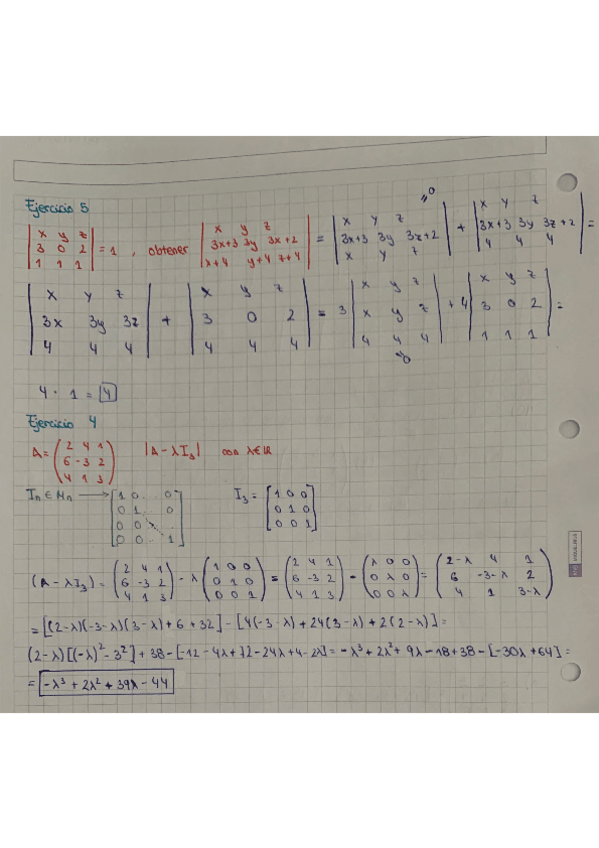 Ejercicio 5
|x y z; 3 0 2; 1 1 1| = 1 , obtener |x y z; 3x+3 3y 3x+2; x+4 y+4 z+4| = |x y z; 3x+3 3y 3z+2; x y z| (=0) + |x y z; 3x+3 3y 3z+2; 4 4 4| =
|x y z; 3x 3y 3z; 4 4 4| + |x y z; 3 0 2; 4 4 4| = 3 |x y z; x y z; 4 4 4| (=0) + 4 |x y z; 3 0 2; 1 1 1| =
4 · 1 = 4
Ejercicio 4
A = (2 4 1; 6 -3 2; 4 1 3) |A - λI₃| con λ∈ℝ
Iₙ ∈ Mₙ → [1 0 ... 0; 0 1 ... 0; 0 0 ...; 0 0 ... 1] I₃ = [1 0 0; 0 1 0; 0 0 1]
(A - λI₃) = (2 4 1; 6 -3 2; 4 1 3) - λ (1 0 0; 0 1 0; 0 0 1) = (2 4 1; 6 -3 2; 4 1 3) - (λ 0 0; 0 λ 0; 0 0 λ) = (2-λ 4 1; 6 -3-λ 2; 4 1 3-λ)
= [(2-λ)(-3-λ)(3-λ) + 6 + 32] - [4(-3-λ) + 24(3-λ) + 2(2-λ)] =
(2-λ)[(-λ)² - 3²] + 38 - [-12 - 4λ + 72 - 24λ + 4 - 2λ] = -λ³ + 2λ² + 9λ - 18 + 38 - [-30λ + 64] =
= -λ³ + 2λ² + 39λ - 44